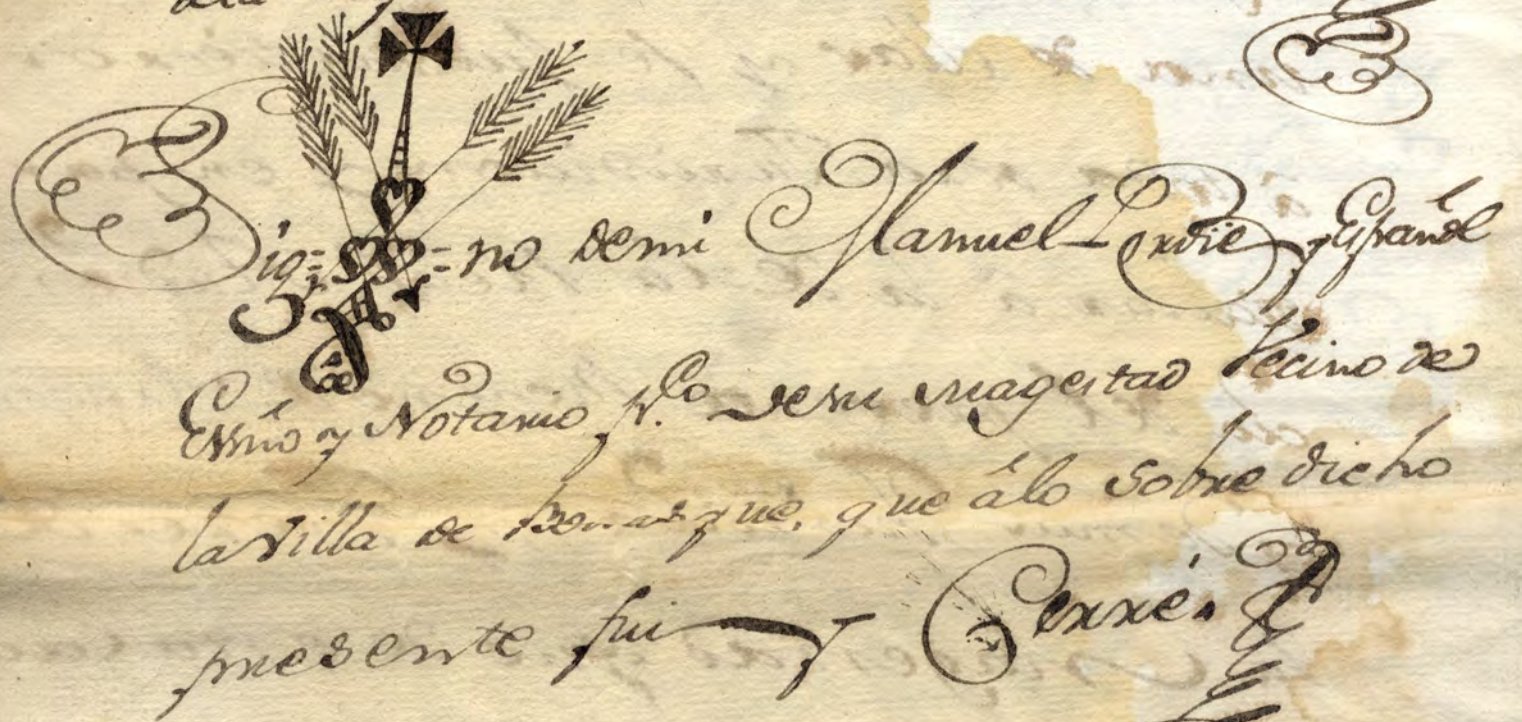 Sig= =no demi Manuel Cordie y Español
Essno y Notario pco desu magestad Vecino de
la villa de Benasque, que álo sobre dicho
presente fui y Cerré.